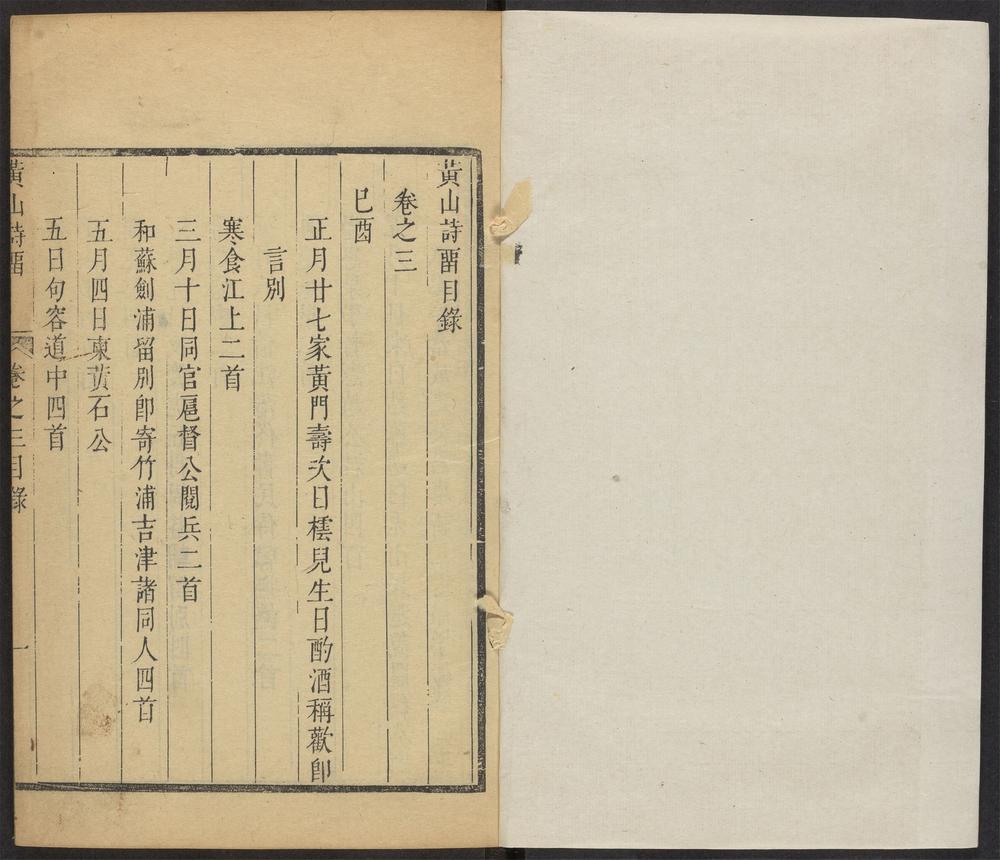 黃山詩畱目錄
卷之三
己酉
正月廿七家黃門壽次日橒兒生日酌酒稱歡卽
言別
寒食江上二首
三月十日同官扈督公閱兵二首
和蘇劍浦留別卽寄竹浦吉津諸同人四首
五月四日柬黃石公
五日句容道中四首
黃山詩畱 卷之三目錄 一